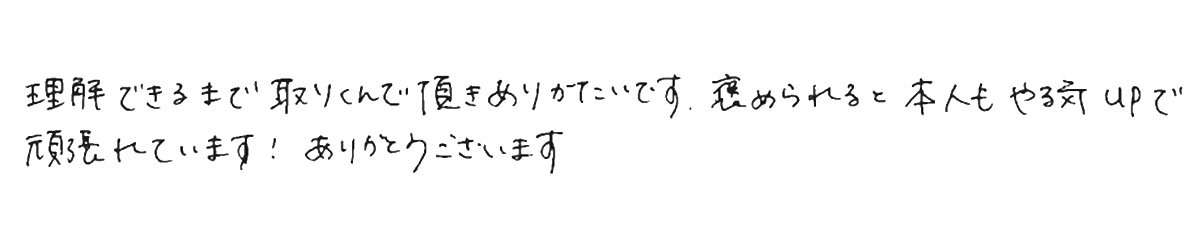 理解できるまで取りくんで頂きありがたいです。褒められると本人もやる気UPで
頑張れています! ありがとうございます